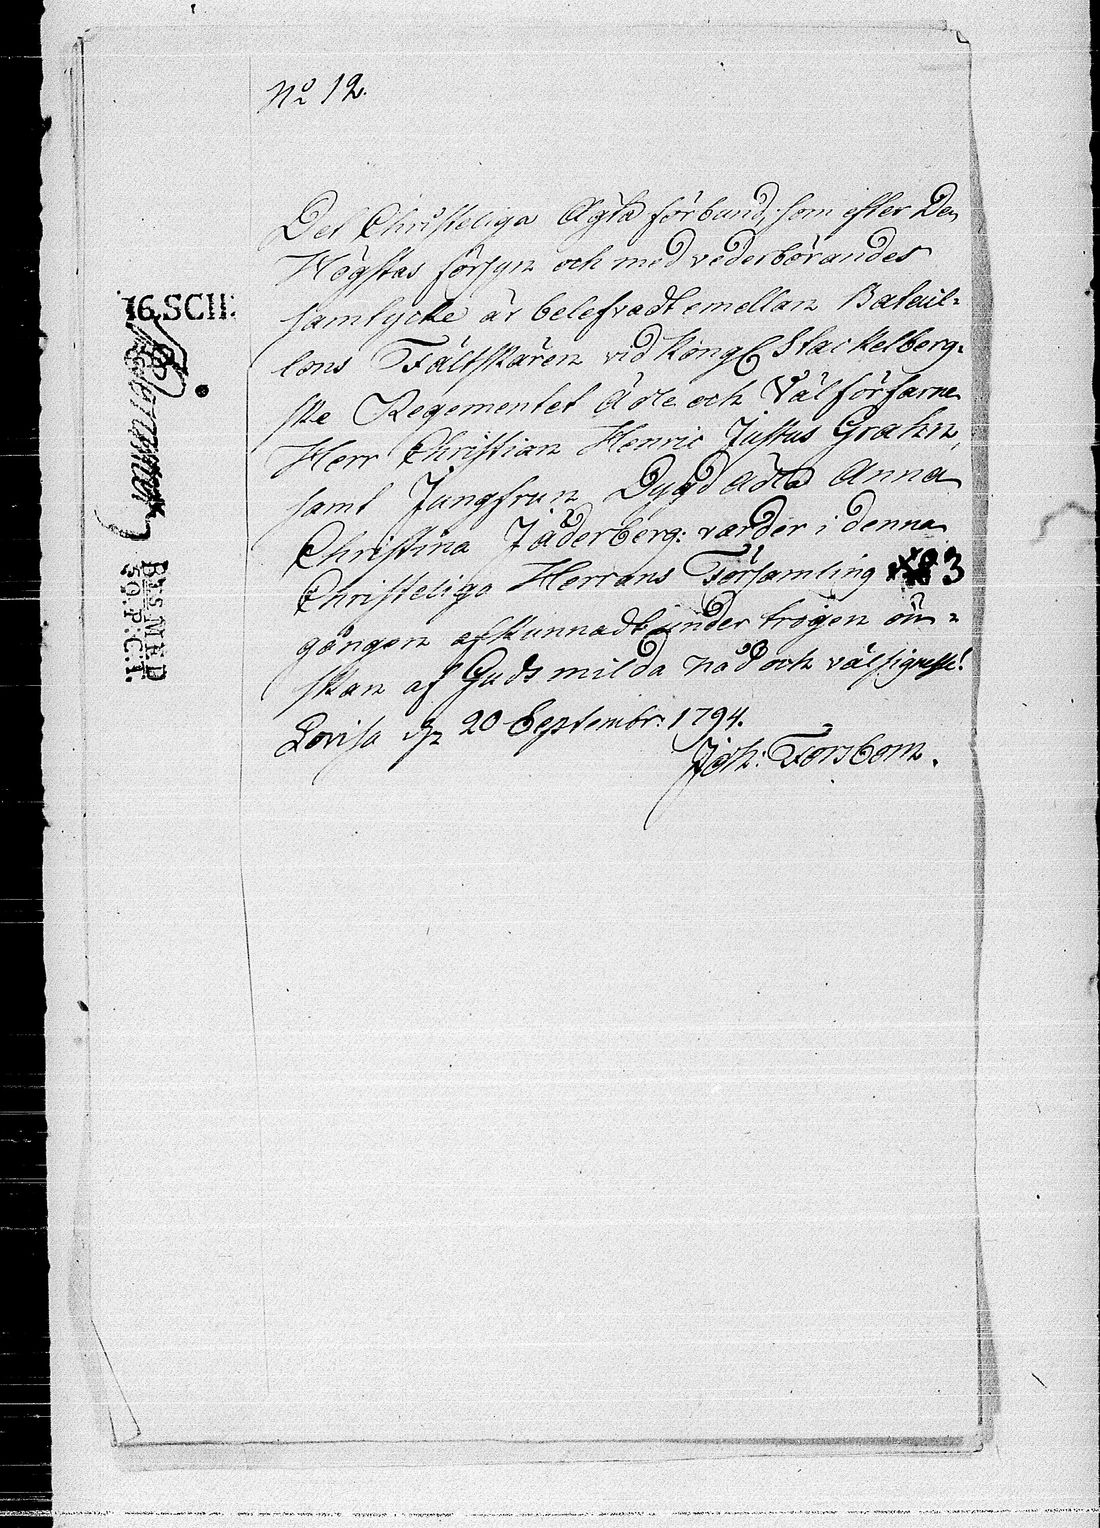 No 12.
Det Christeliga Ägta förbund, som efter Den
Högstas försyn och med vederbörandes
samtycke är belefvadt emellan Batail-
lons Fältskären vid Kongl Stackelberg-
ske Regementet Ädle och Välförfarne
Herr Christian Henric Justus Grahn,
samt Jungfrun Dygd Ädla Anna
Christina Jäderberg: varder i denna
Christeliga Herrans Församling 3
gången afkunnadt under trogen ön-
skan af Guds milda nåd och välsignelse!
Lovisa den 20 Septembr: 1794.
Joh: Forsbom.
16.SCH: